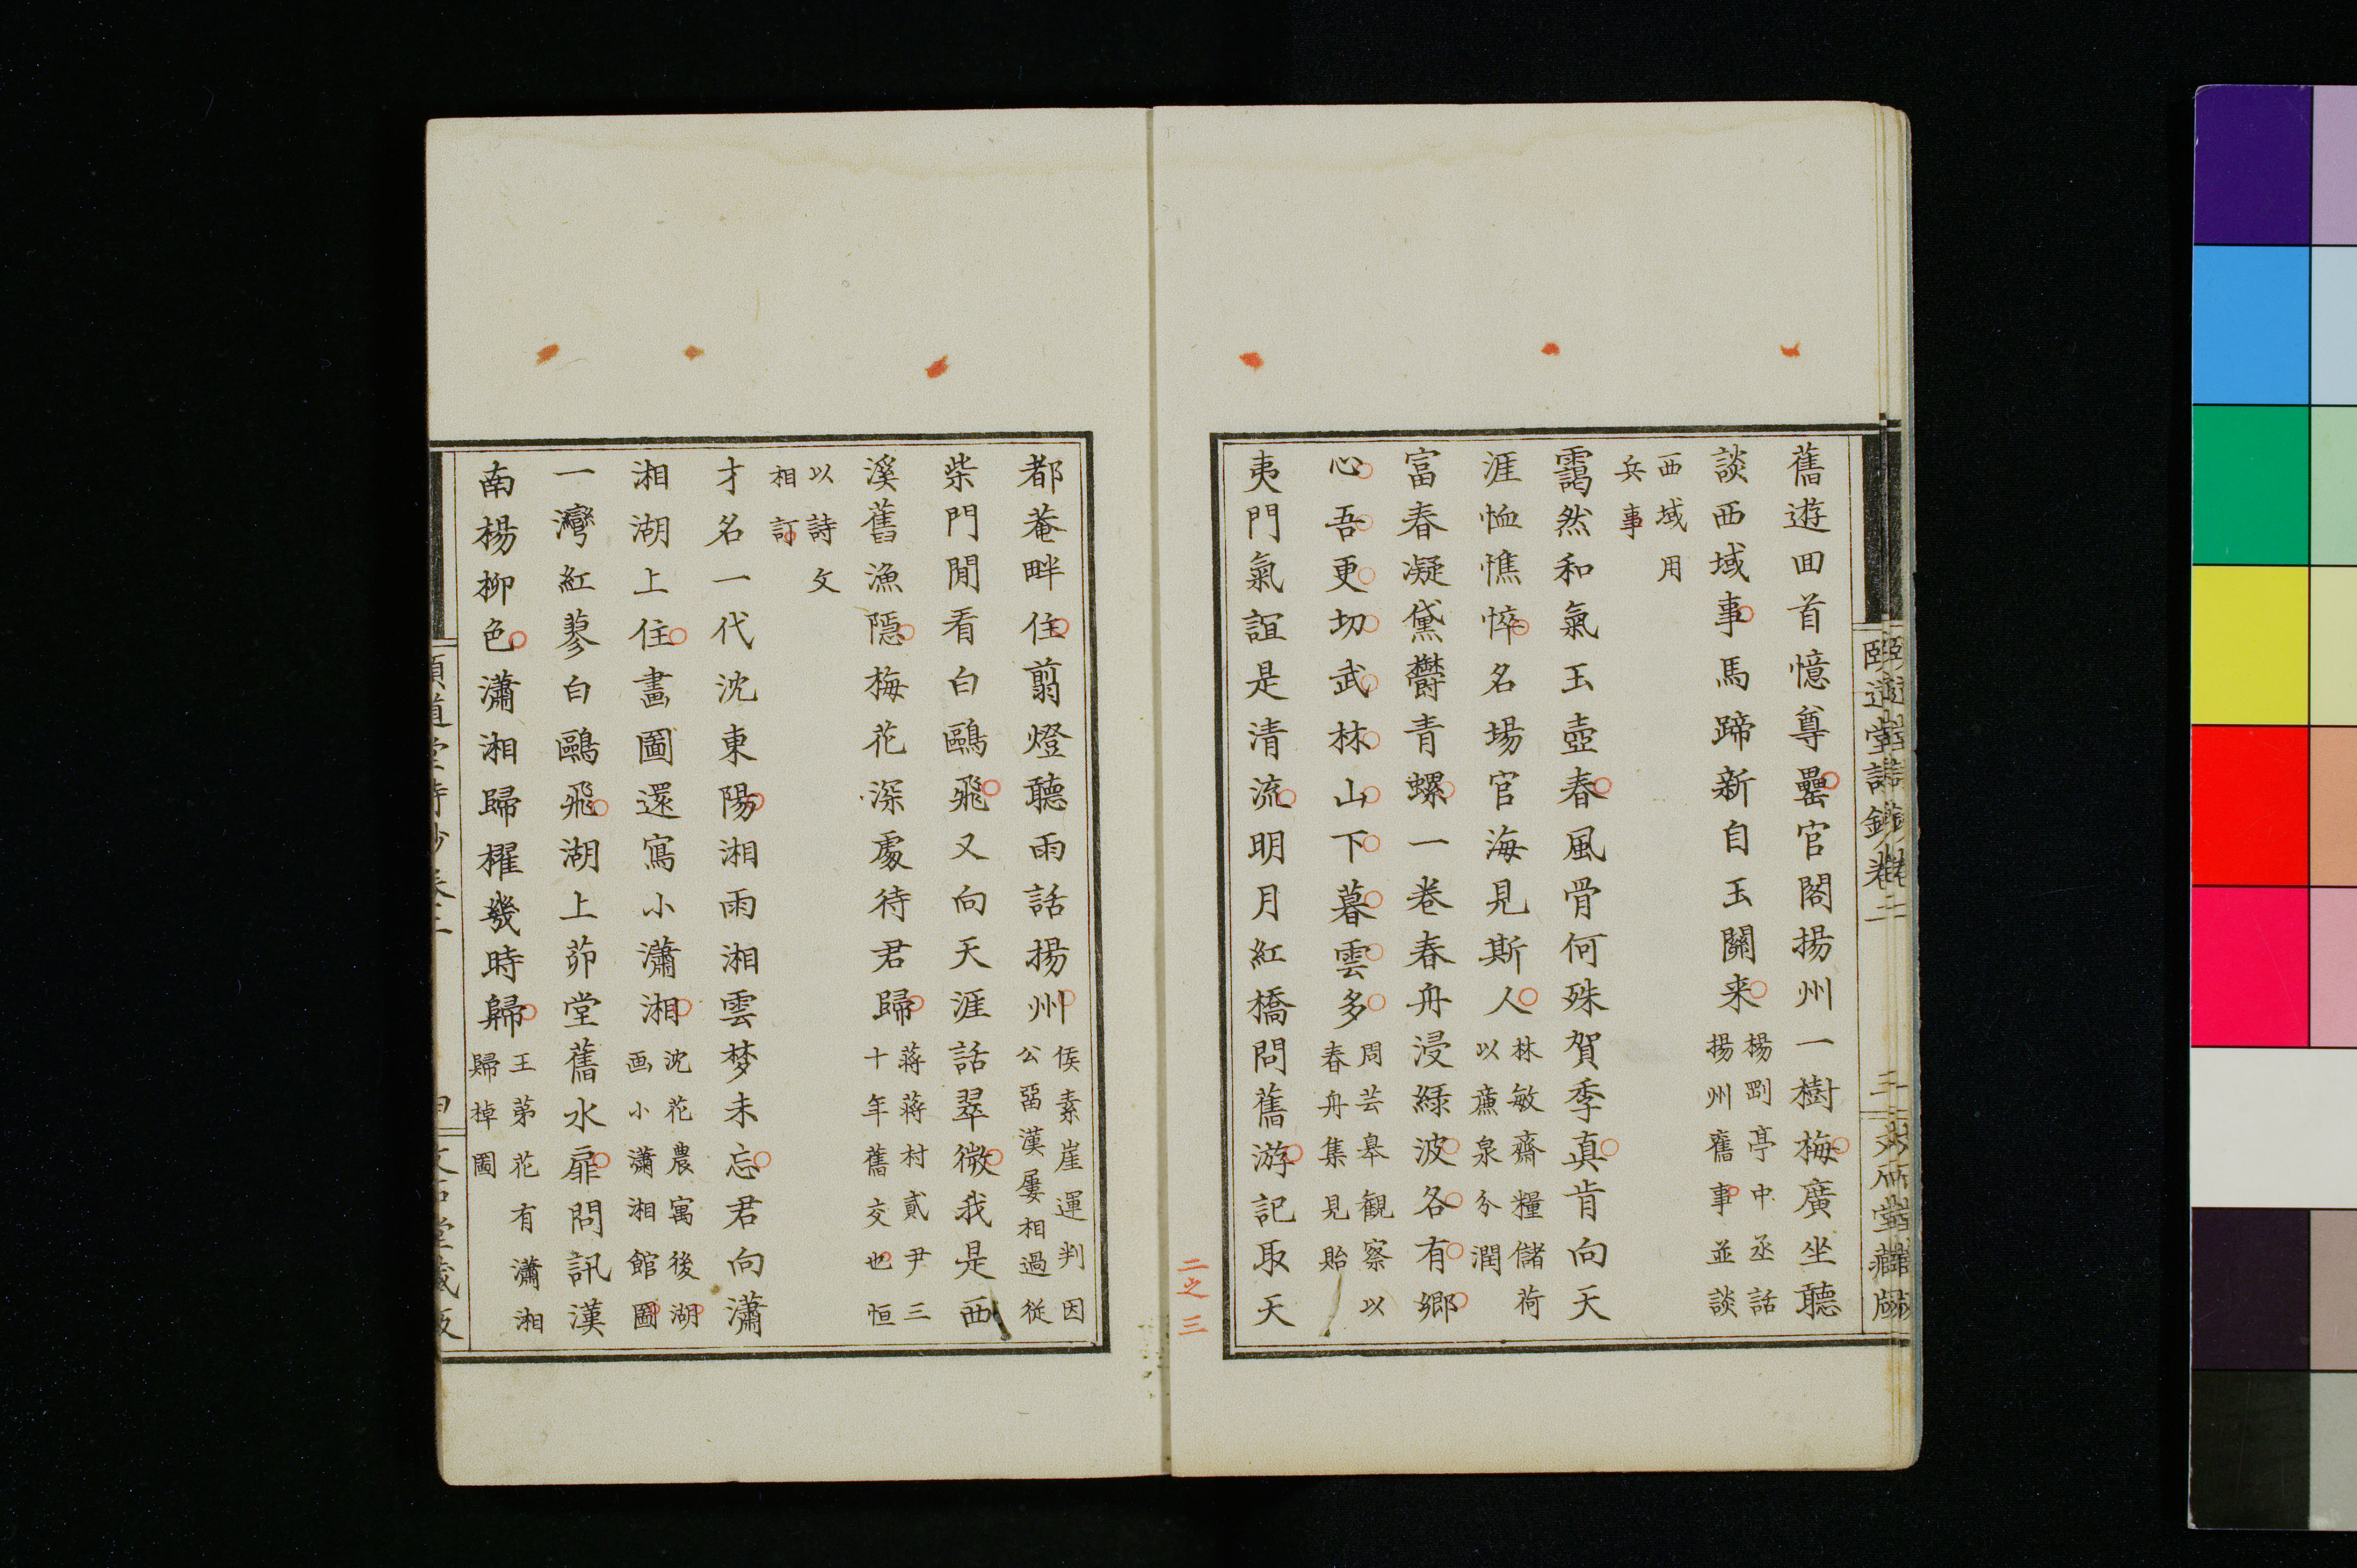 頤道堂詩鈔卷二
三
舊遊回首憶尊罍官閣揚州一樹梅廣坐聽
談西域事馬蹄新自玉關来
楊剛亭中丞話
揚州舊事並談
西域用
兵事
靄然和氣玉壺春風骨何殊賀季真肯向天
涯恤憔悴名場官海見斯人
林敏齋糧儲荷
以蔗泉分潤
富春凝黛欝青螺一卷春舟浸緑波各有鄉
心吾更切武林山下暮雲多
周芸皋観察以
春舟集見貽
夷門氣誼是清流明月紅橋問舊游記取天
二之三
都菴畔住翦燈聽雨話揚州
侯素崖運判因
公畱漢屢相過從
柴門閒看白鷗飛又向天涯話翠微我是西
溪舊漁隱梅花深處待君歸
蔣蔣村貳尹三
十年舊交也恒
以詩文
相訂
才名一代沈東陽湘雨湘雲梦未忘君向瀟
湘湖上住畫圖還寫小瀟湘
沈花農寓後湖
画小瀟湘館圖
一灣紅蓼白鷗飛湖上茆堂舊水扉問訊漢
南楊柳色瀟湘歸櫂幾時歸
王苐花有瀟湘
歸棹圖